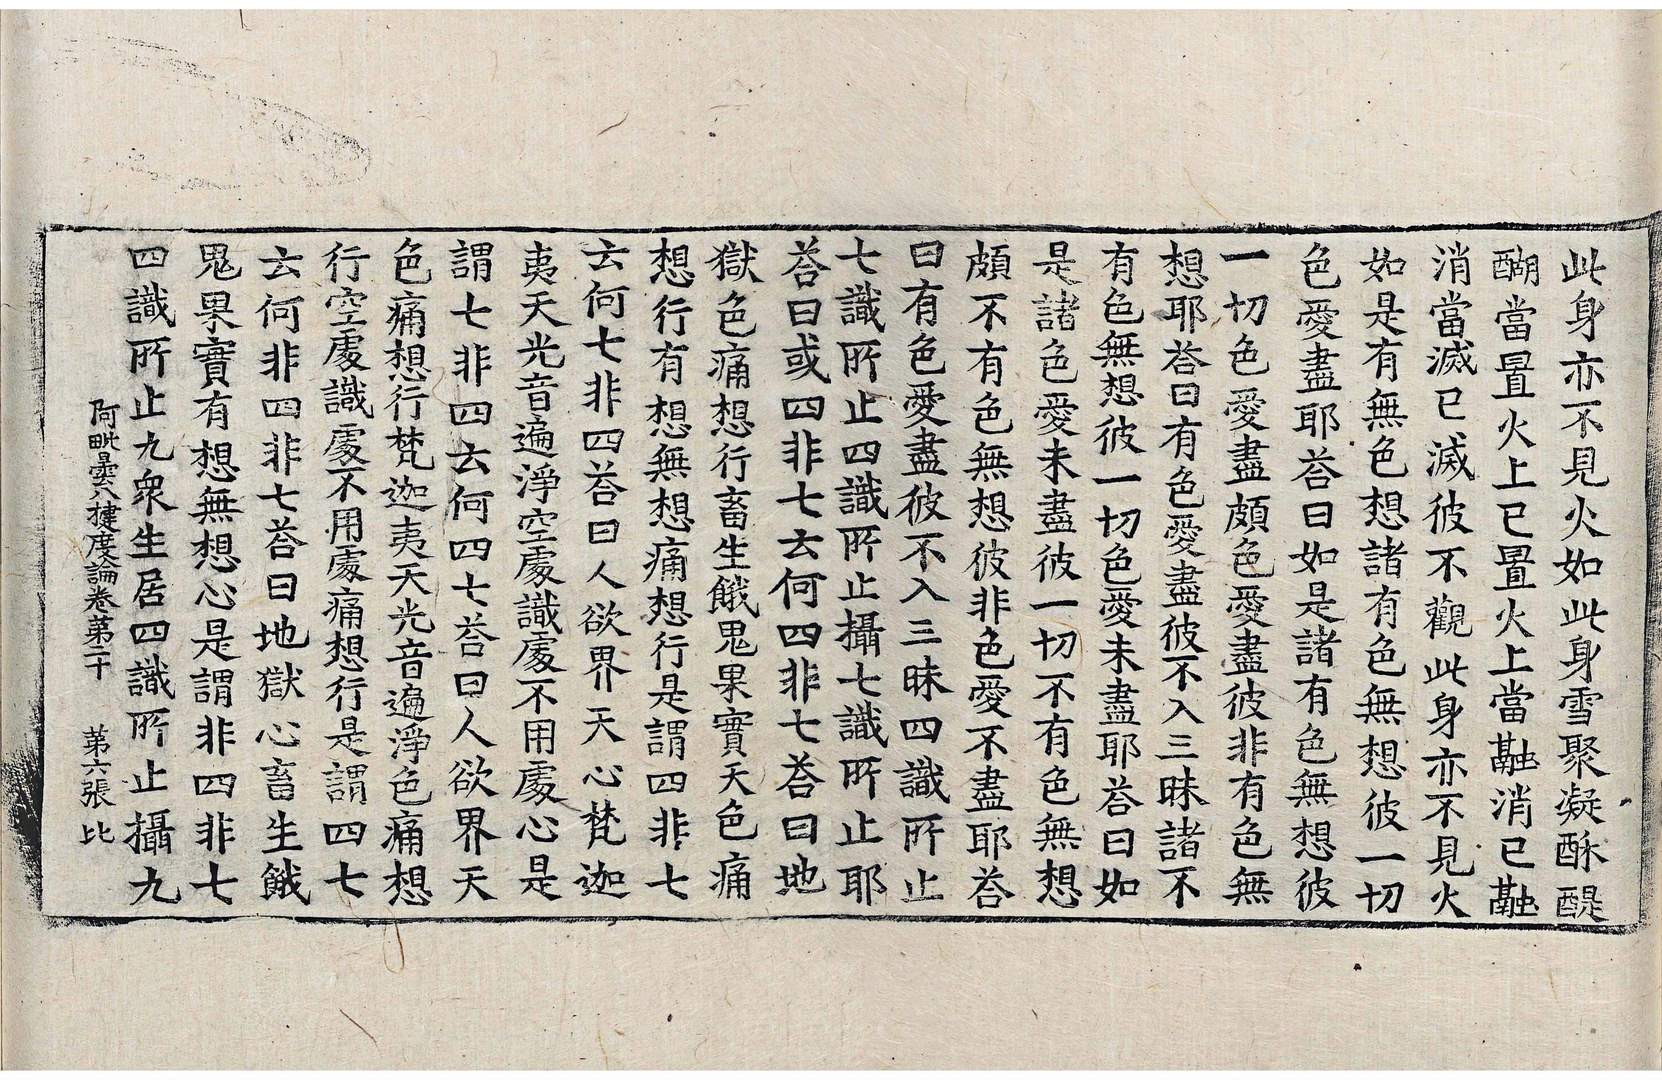 此身亦不見火如此身雪聚凝酥醍
醐當置火上已置火上當融消已融
消當滅已滅彼不觀此身亦不見火
如是有無色想諸有色無想彼一切
色愛盡耶荅曰如是諸有色無想彼
一切色愛盡頗色愛盡彼非有色無
想耶荅曰有色愛盡彼不入三昧諸不
有色無想彼一切色愛未盡耶荅曰如
是諸色愛未盡彼一切不有色無想
頗不有色無想彼非色愛不盡耶荅
曰有色愛盡彼不入三昧四識所止
七識所止四識所止攝七識所止耶
荅曰或四非七云何四非七荅曰地
獄色痛想行畜生餓鬼果實天色痛
想行有想無想痛想行是謂四非七
云何七非四荅曰人欲界天心梵迦
夷天光音遍淨空處識處不用處心是
謂七非四云何四七荅曰人欲界天
色痛想行梵迦夷天光音遍淨色痛想
行空處識處不用處痛想行是謂四七
云何非四非七荅曰地獄心畜生餓
鬼果實有想無想心是謂非四非七
四識所止九衆生居四識所止攝九
阿毗曇八揵度論卷第二十 第六張 比